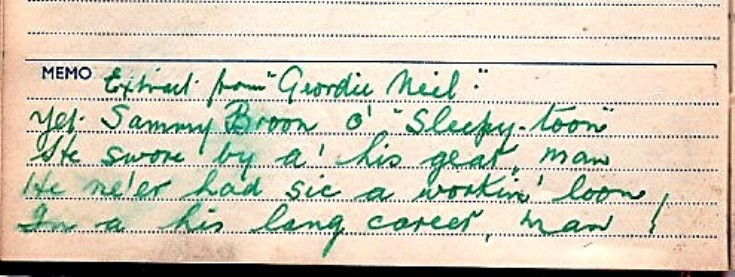 MEMO Extract from "Geordie Neil"
Yet Sammy Broon o' "Sleepy-toon"
He swore by a' his gear, man
He ne'er had sic a workin' loon,
In a his lang career, man !